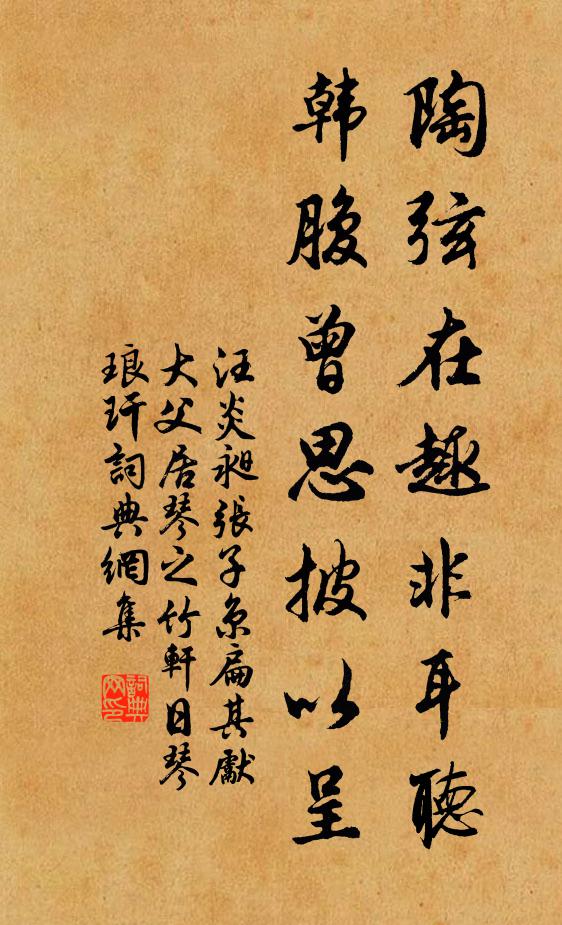 陶弦在趣非耳聴
韩腹曾思披以呈
汪炎昶張子京扁其獻
大父居琴之竹軒日琴
琅玕詞典網集
詞典
网印